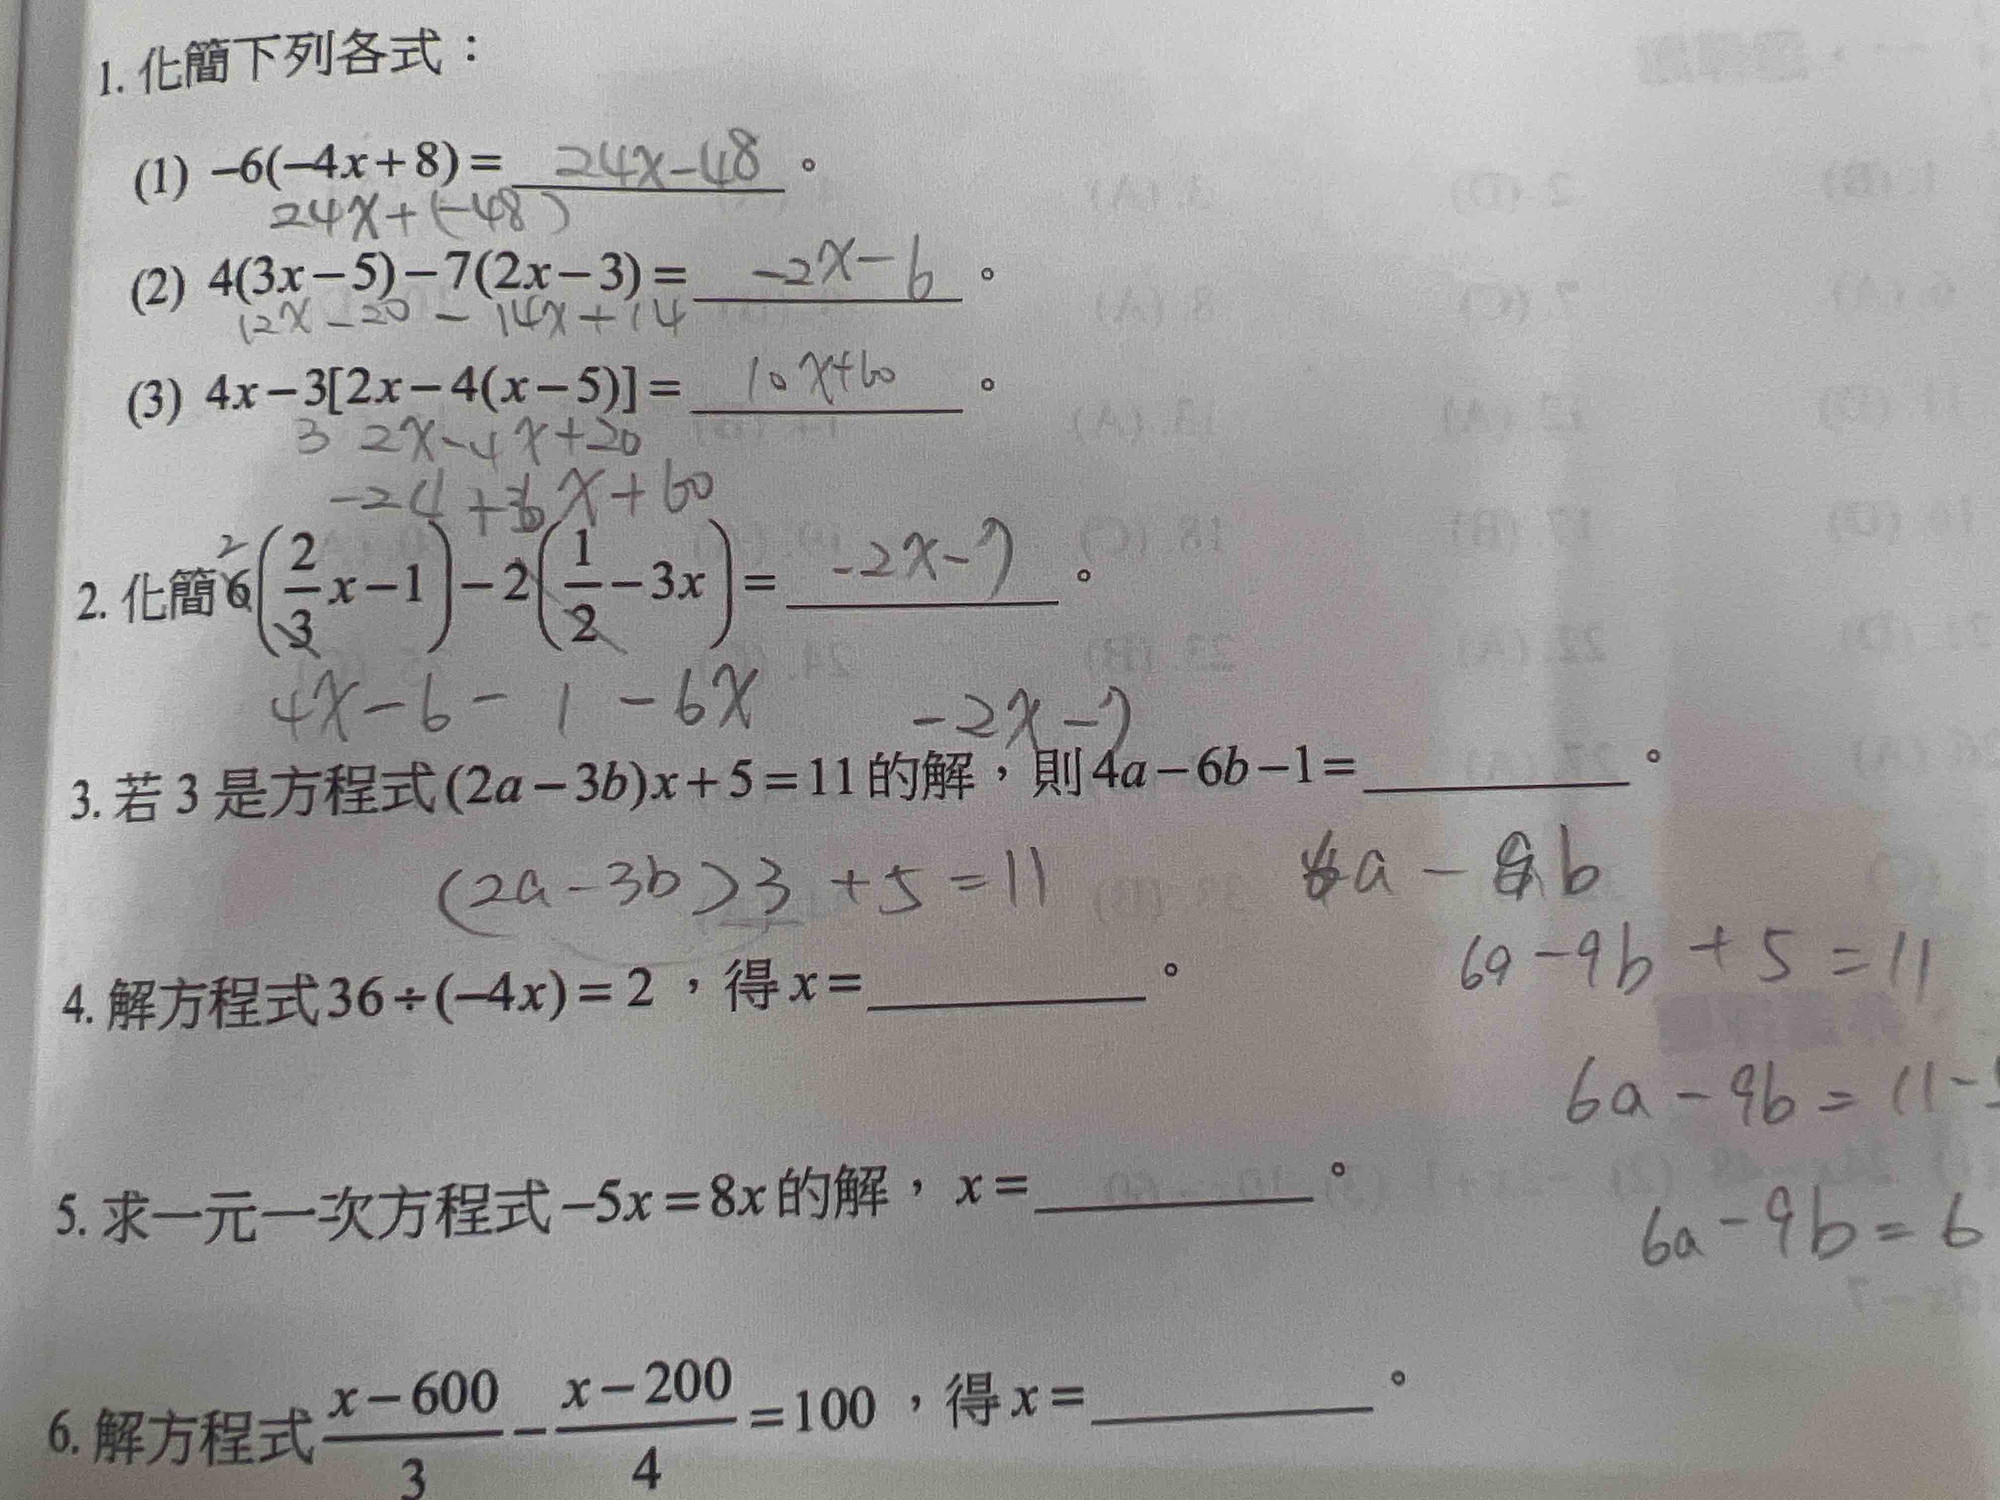 1. 化簡下列各式：
(1) −6(−4x+8)= 24x−48 。
24x+(−48)
(2) 4(3x−5)−7(2x−3)= −2x−6 。
12x−20−14x+14
(3) 4x−3[2x−4(x−5)]= 10x+60 。
3 2x−4x+20
x+60
2
2. 化簡6(2/3 x−1)−2(1/2−3x)= −2x−7 。
4x−6−1−6x −2x−7
3. 若 3 是方程式(2a−3b)x+5=11的解，則4a−6b−1= 。
(2a−3b)3+5=11
a− b
6a−9b+5=11
4. 解方程式36÷(−4x)=2，得x= 。
6a−9b=11−5
5. 求一元一次方程式−5x=8x的解，x= 。
6a−9b=6
6. 解方程式 x−600/3 − x−200/4 =100，得x= 。